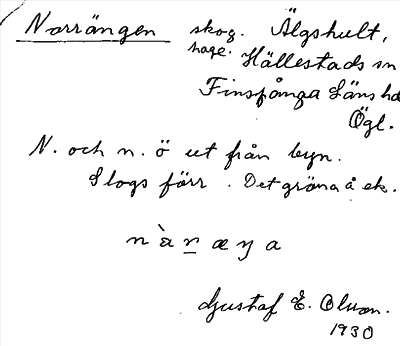 Norrängen skog. Älgshult,
hage. Hällestads sn
Finspånga Läns hd
Ögl.
N. och n. ö ut från byn.
Slogs förr. Det gröna å ek.
n à r æ ŋ a
Gustaf E. Olsson.
1930